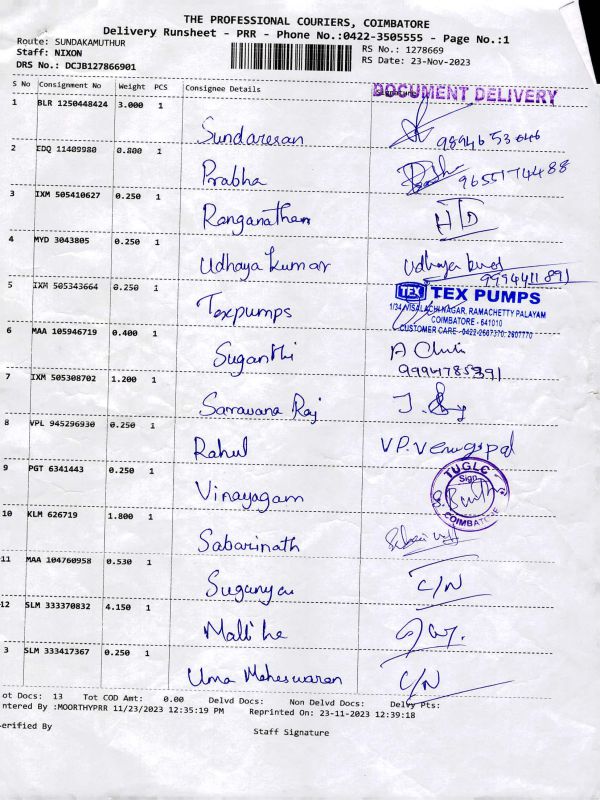 THE PROFESSIONAL COURIERS, COIMBATORE
Delivery Runsheet - PRR - Phone No.:0422-3505555 - Page No.:1
Route: SUNDAKAMUTHUR
Staff: NIXON
DRS No.: DCJB127866901
RS No.: 1278669
RS Date: 23-Nov-2023
S No Consignment No Weight PCS Consignee Details Signature
DOCUMENT DELIVERY
1 BLR 1250448424 3.000 1 Sundaresan
2 EDQ 11409980 0.800 1 Prabha 9655174488
3 IXM 505410627 0.250 1 Ranganathan HTD
4 MYD 3043805 0.250 1 Udhaya Kumar Udhaya
9994411891
5 IXM 505343664 0.250 1 Texpumps
TEX TEX PUMPS
1/34, VISALACHI NAGAR, RAMACHETTY PALAYAM
COIMBATORE - 641010
CUSTOMER CARE -0422-2607370: 2607770
6 MAA 105946719 0.400 1 Suganthi
7 IXM 505308702 1.200 1 Sarravana Raj
8 VPL 945296930 0.250 1 Rahul V.P. Venugopal
9 PGT 6341443 0.250 1 Vinayagam
TUGLC
Sign
COIMBATORE
10 KLM 626719 1.800 1 Sabarinath
11 MAA 104760958 0.530 1 Suganya C/N
12 SLM 333370832 4.150 1 Mallika
3 SLM 333417367 0.250 1 Uma Maheswaran C/N
ot Docs: 13 Tot COD Amt: 0.00 Delvd Docs: Non Delvd Docs: Delvy Pts:
ntered By :MOORTHYPRR 11/23/2023 12:35:19 PM Reprinted On: 23-11-2023 12:39:18
erified By
Staff Signature